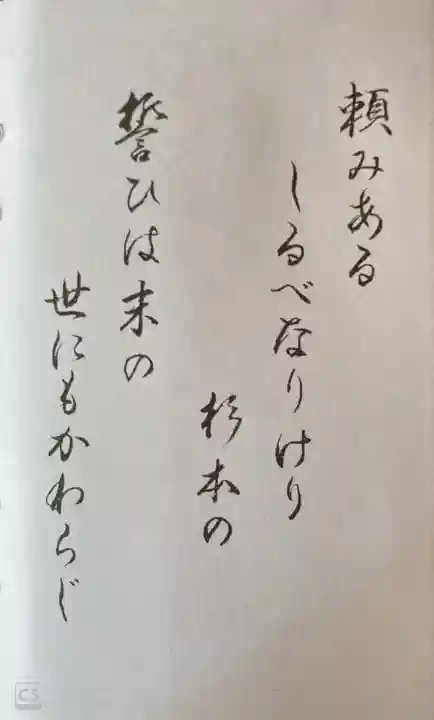 頼みある
しるべなりけり
杉本の
誓ひは末の
世にもかわらじ
CS